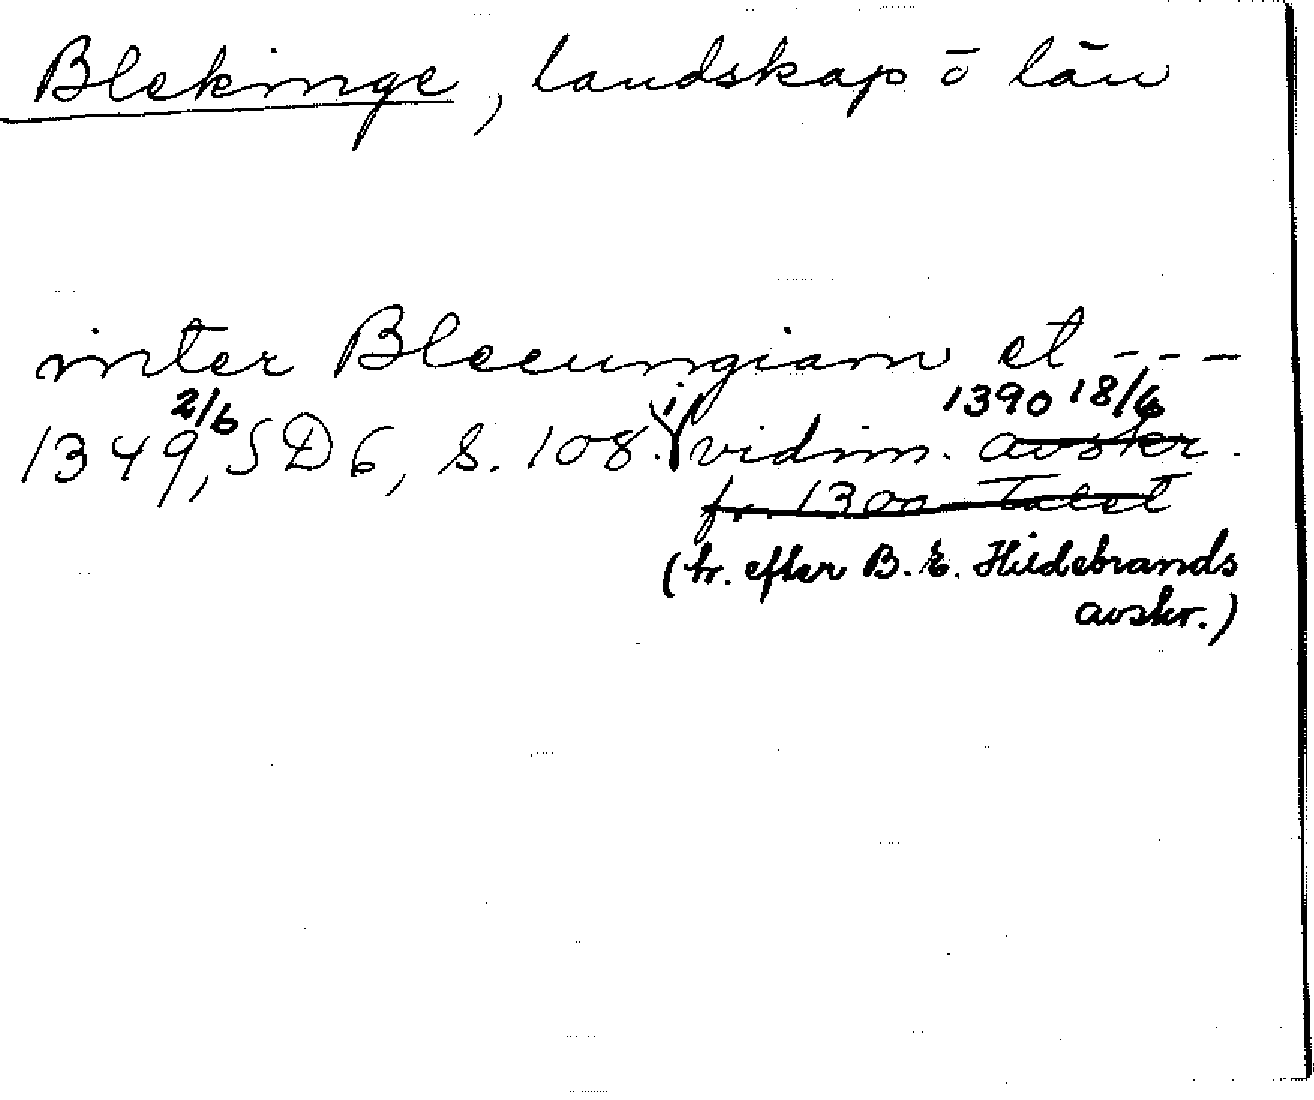 Blekinge, landskap o län
inter Blecungiam et ---
1349 2/6, SD 6, s. 108. i vidim. 1390 18/6 avskr.
fr. 1300-talet
(tr. efter B. E. Hildebrands
avskr.)